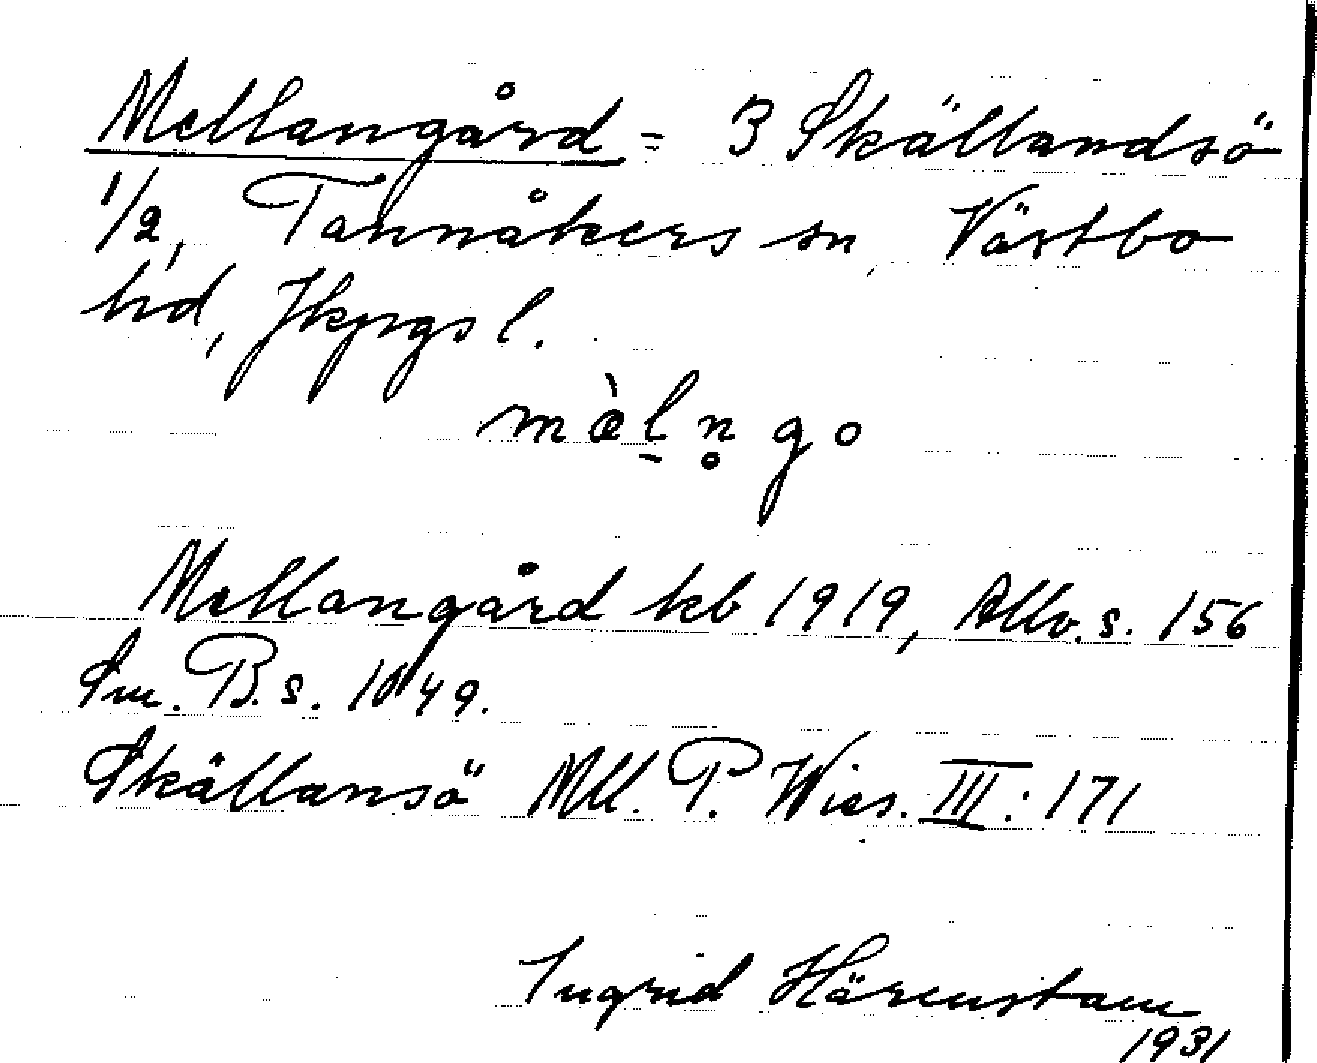 Mellangård = 3 Skällandsö
1/2, Tannåkers sn, Västbo
hd, Jkpgs l.
mæ̀l̠n̥go
Mellangård kb 1919, Allv. s. 156
Sm. B. s. 1049.
Skällansö Mll. P. Wies. III: 171
Ingrid Härenstam
1931